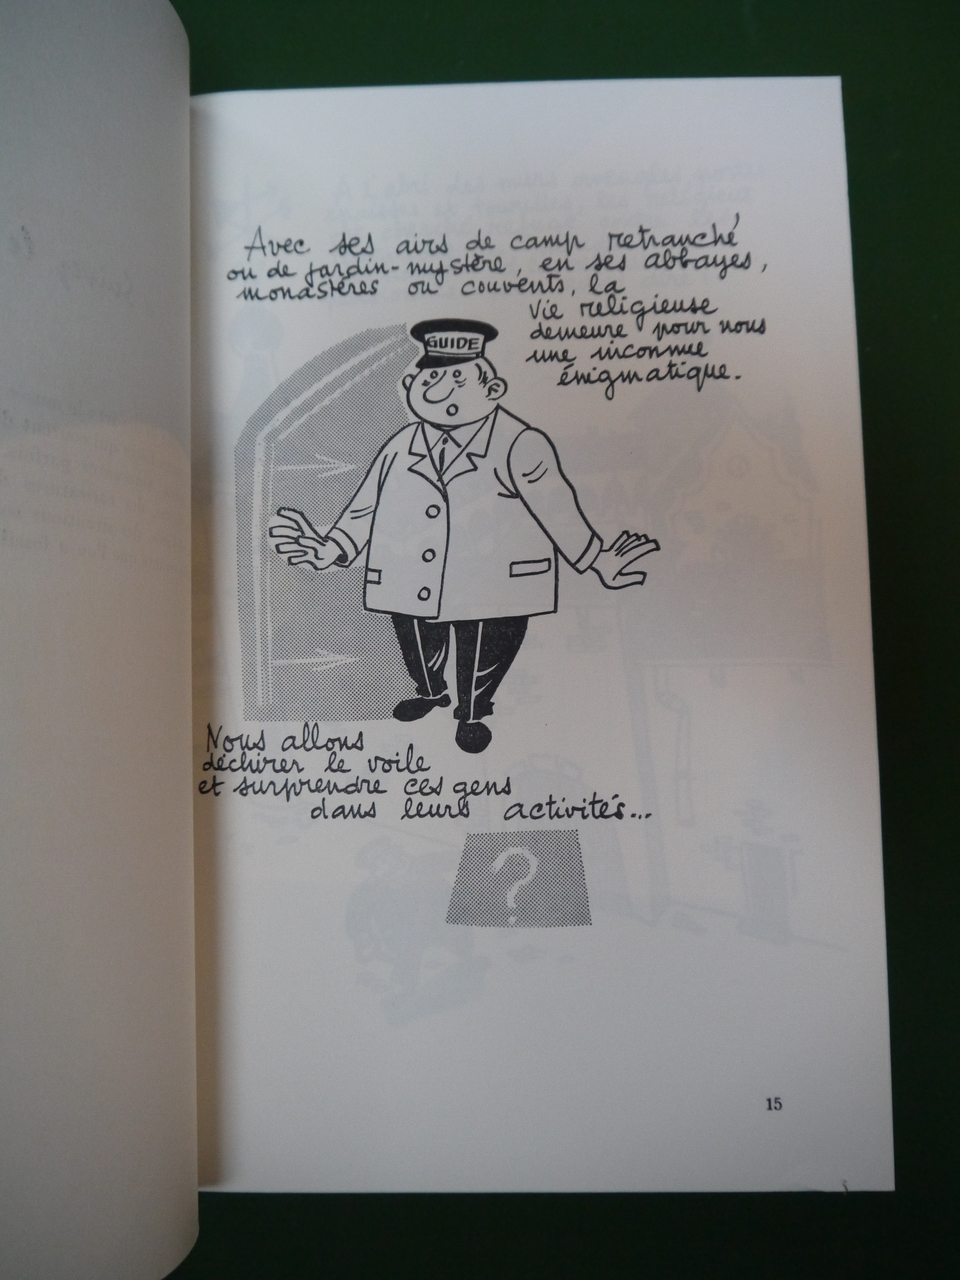 Avec ses airs de camp retranché
ou de jardin-mystère, en ses abbayes,
monastères ou couvents, la
Vie religieuse
demeure pour nous
une inconnue
énigmatique.
GUIDE
Nous allons
déchirer le voile
et surprendre ces gens
dans leurs activités...
?
15